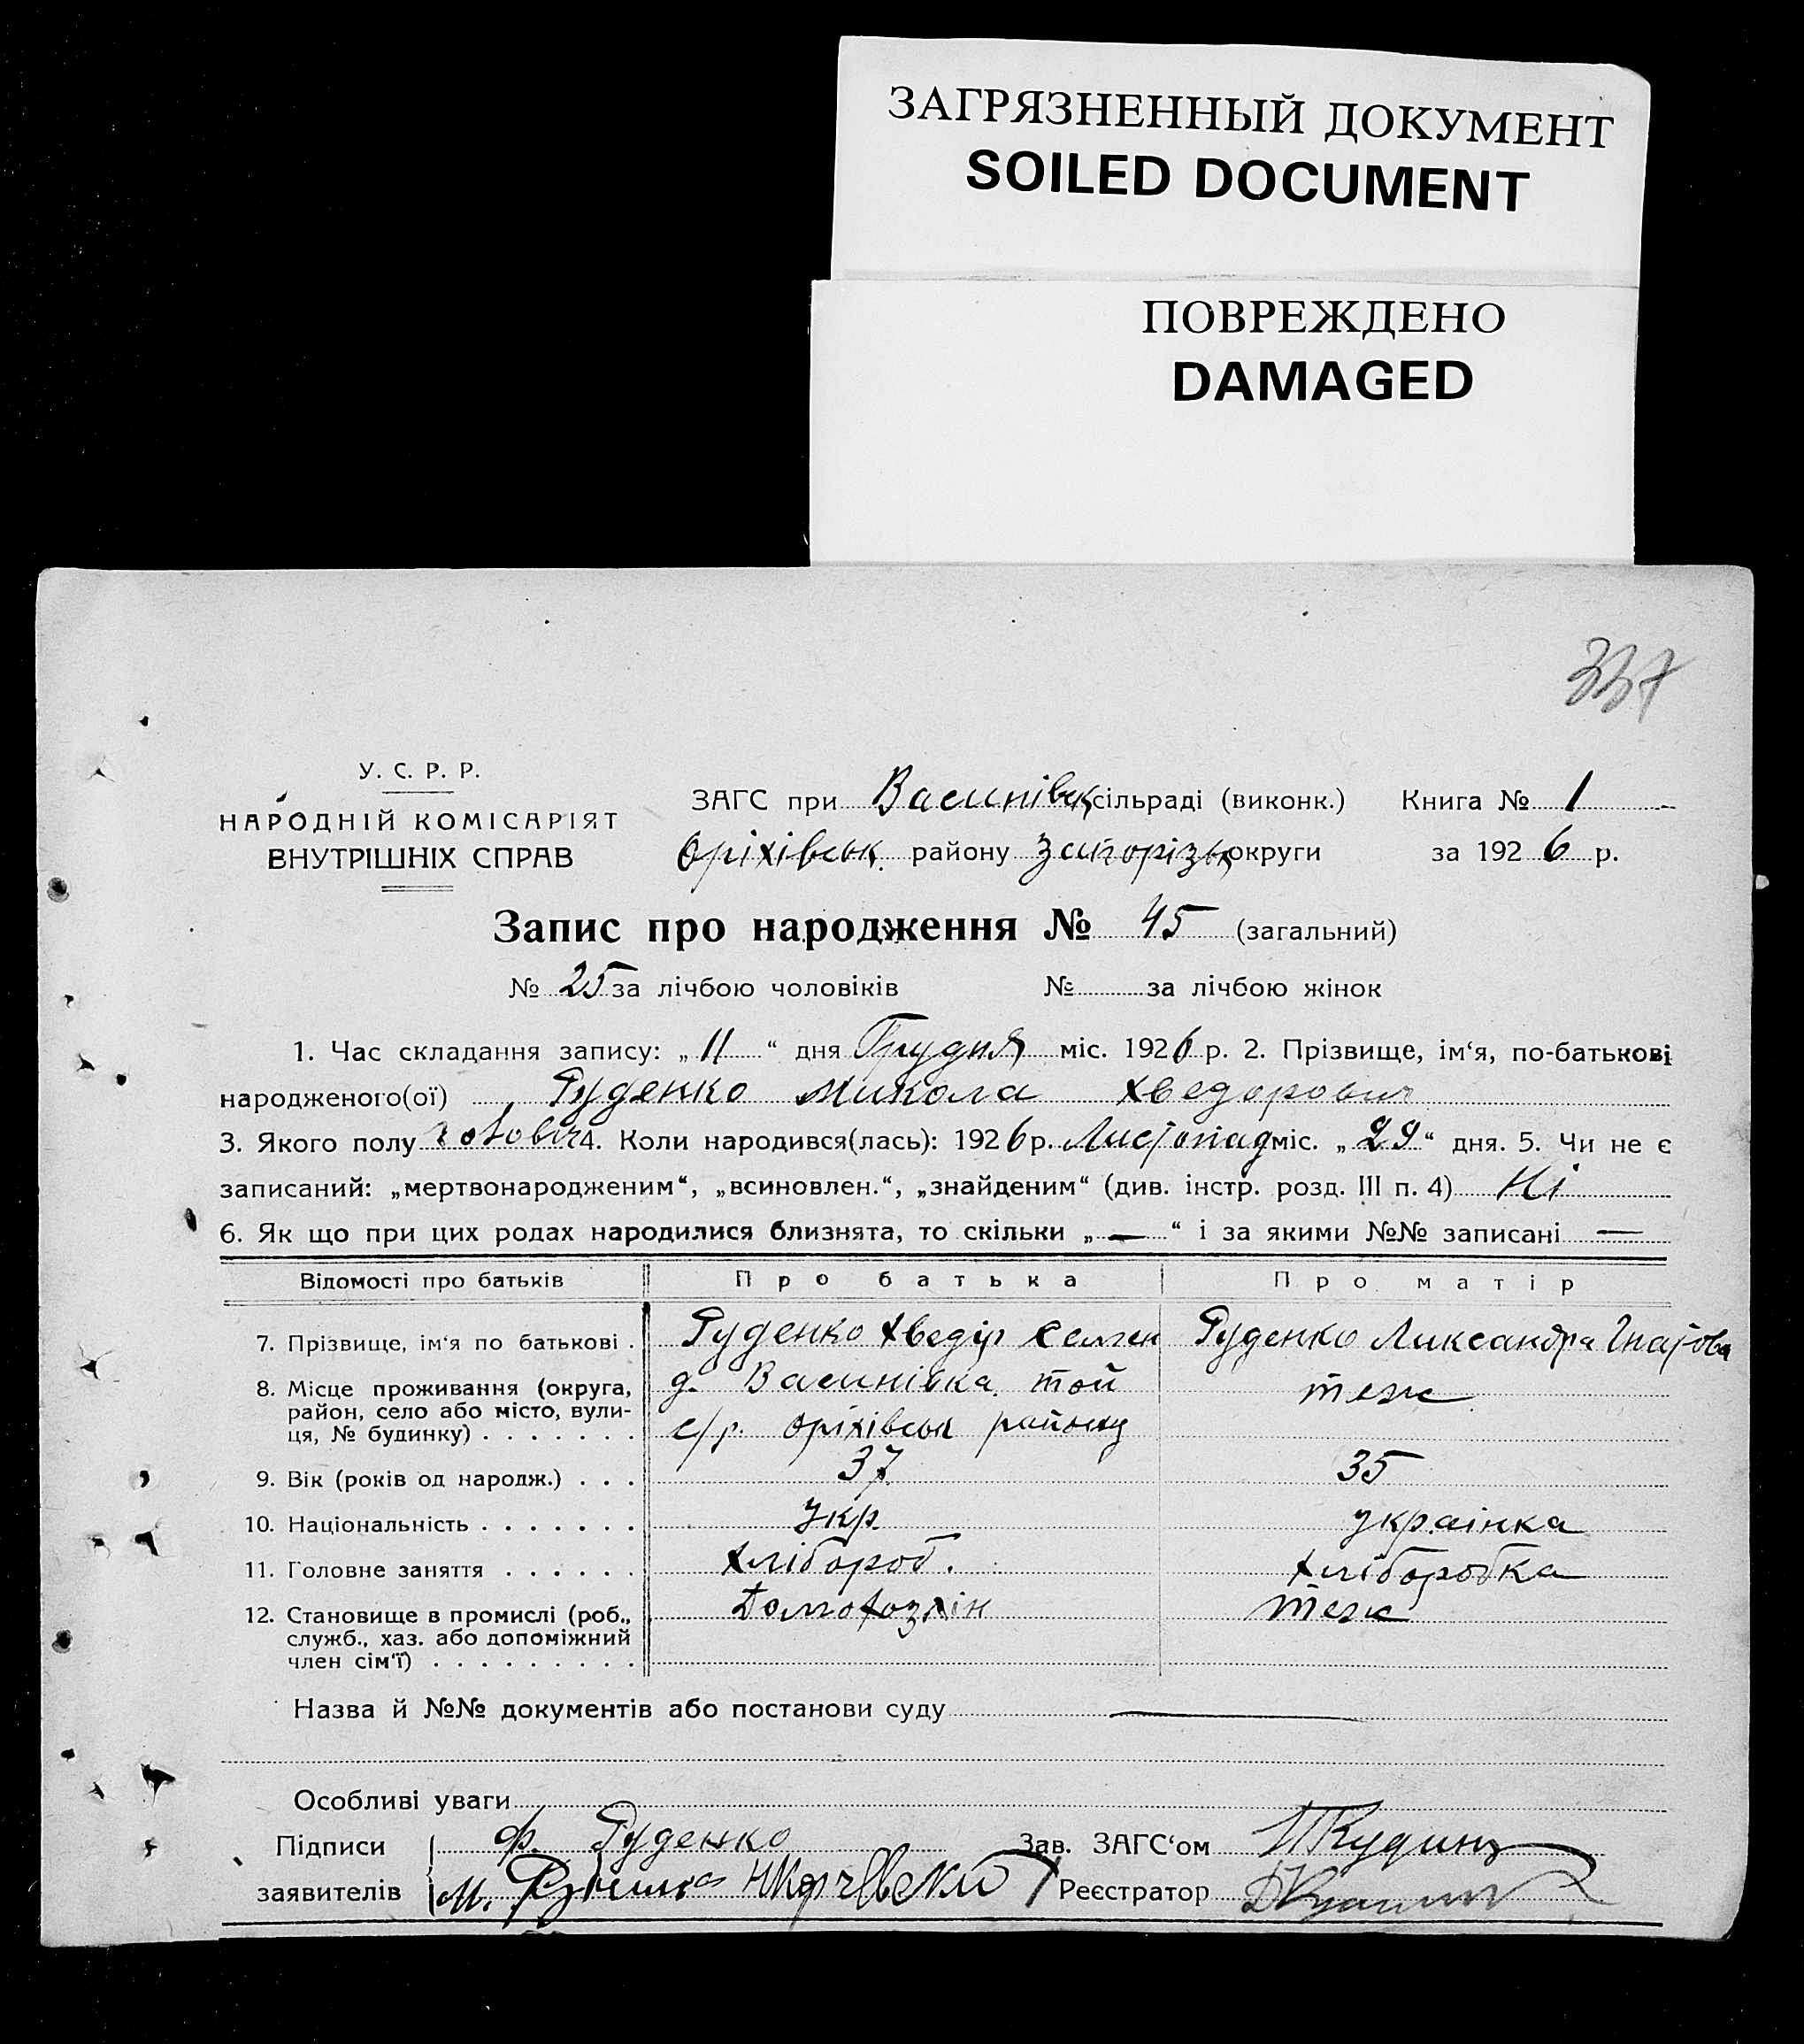 ЗАГРЯЗНЕННЫЙ ДОКУМЕНТ
SOILED DOCUMENT
ПОВРЕЖДЕНО
DAMAGED
337
У. С. Р. Р.
НАРОДНІЙ КОМІСАРІЯТ
ВНУТРІШНІХ СПРАВ
ЗАГС при Васинівськ сільраді (виконк.) Книга № 1
Оріхівськ. району Запорізьк округи за 1926 р.
Запис про народження № 45 (загальний)
№ 25 за лічбою чоловіків № за лічбою жінок
1. Час складання запису: „11“ дня Грудня міс. 1926 р. 2. Прізвище, ім‘я, по-батькові
народженого(ої) Руденко Микола Хведорович
3. Якого полу чоловіч 4. Коли народився(лась): 1926 р. Листопад міс. „29“ дня. 5. Чи не є
записаний: „мертвонародженим“, „всиновлен.“, „знайденим“ (див. інстр. розд. III п. 4) Ні
6. Як що при цих родах народилися близнята, то скільки „—“ і за якими №№ записані —
Відомості про батьків Про батька Про матір
7. Прізвище, ім‘я по батькові . Руденко Хведір Семен Руденко Ликсандра Гнатова
8. Місце проживання (округа, район, село або місто, вулиця, № будинку) . . . . . . . д. Васинівка той теж
с/р. Оріхівськ району
9. Вік (років од народж.) . . . 37 35
10. Національність . . . . . . . Укр. українка
11. Головне заняття . . . . . . Хлібороб. Хліборобка
12. Становище в промислі (роб., Домохозяін теж
служб., хаз. або допоміжний
член сім‘ї) . . . . . . . . .
Назва й №№ документів або постанови суду —
Особливі уваги
Підписи Ф. Руденко Зав. ЗАГС‘ом
заявителів М. Реєстратор